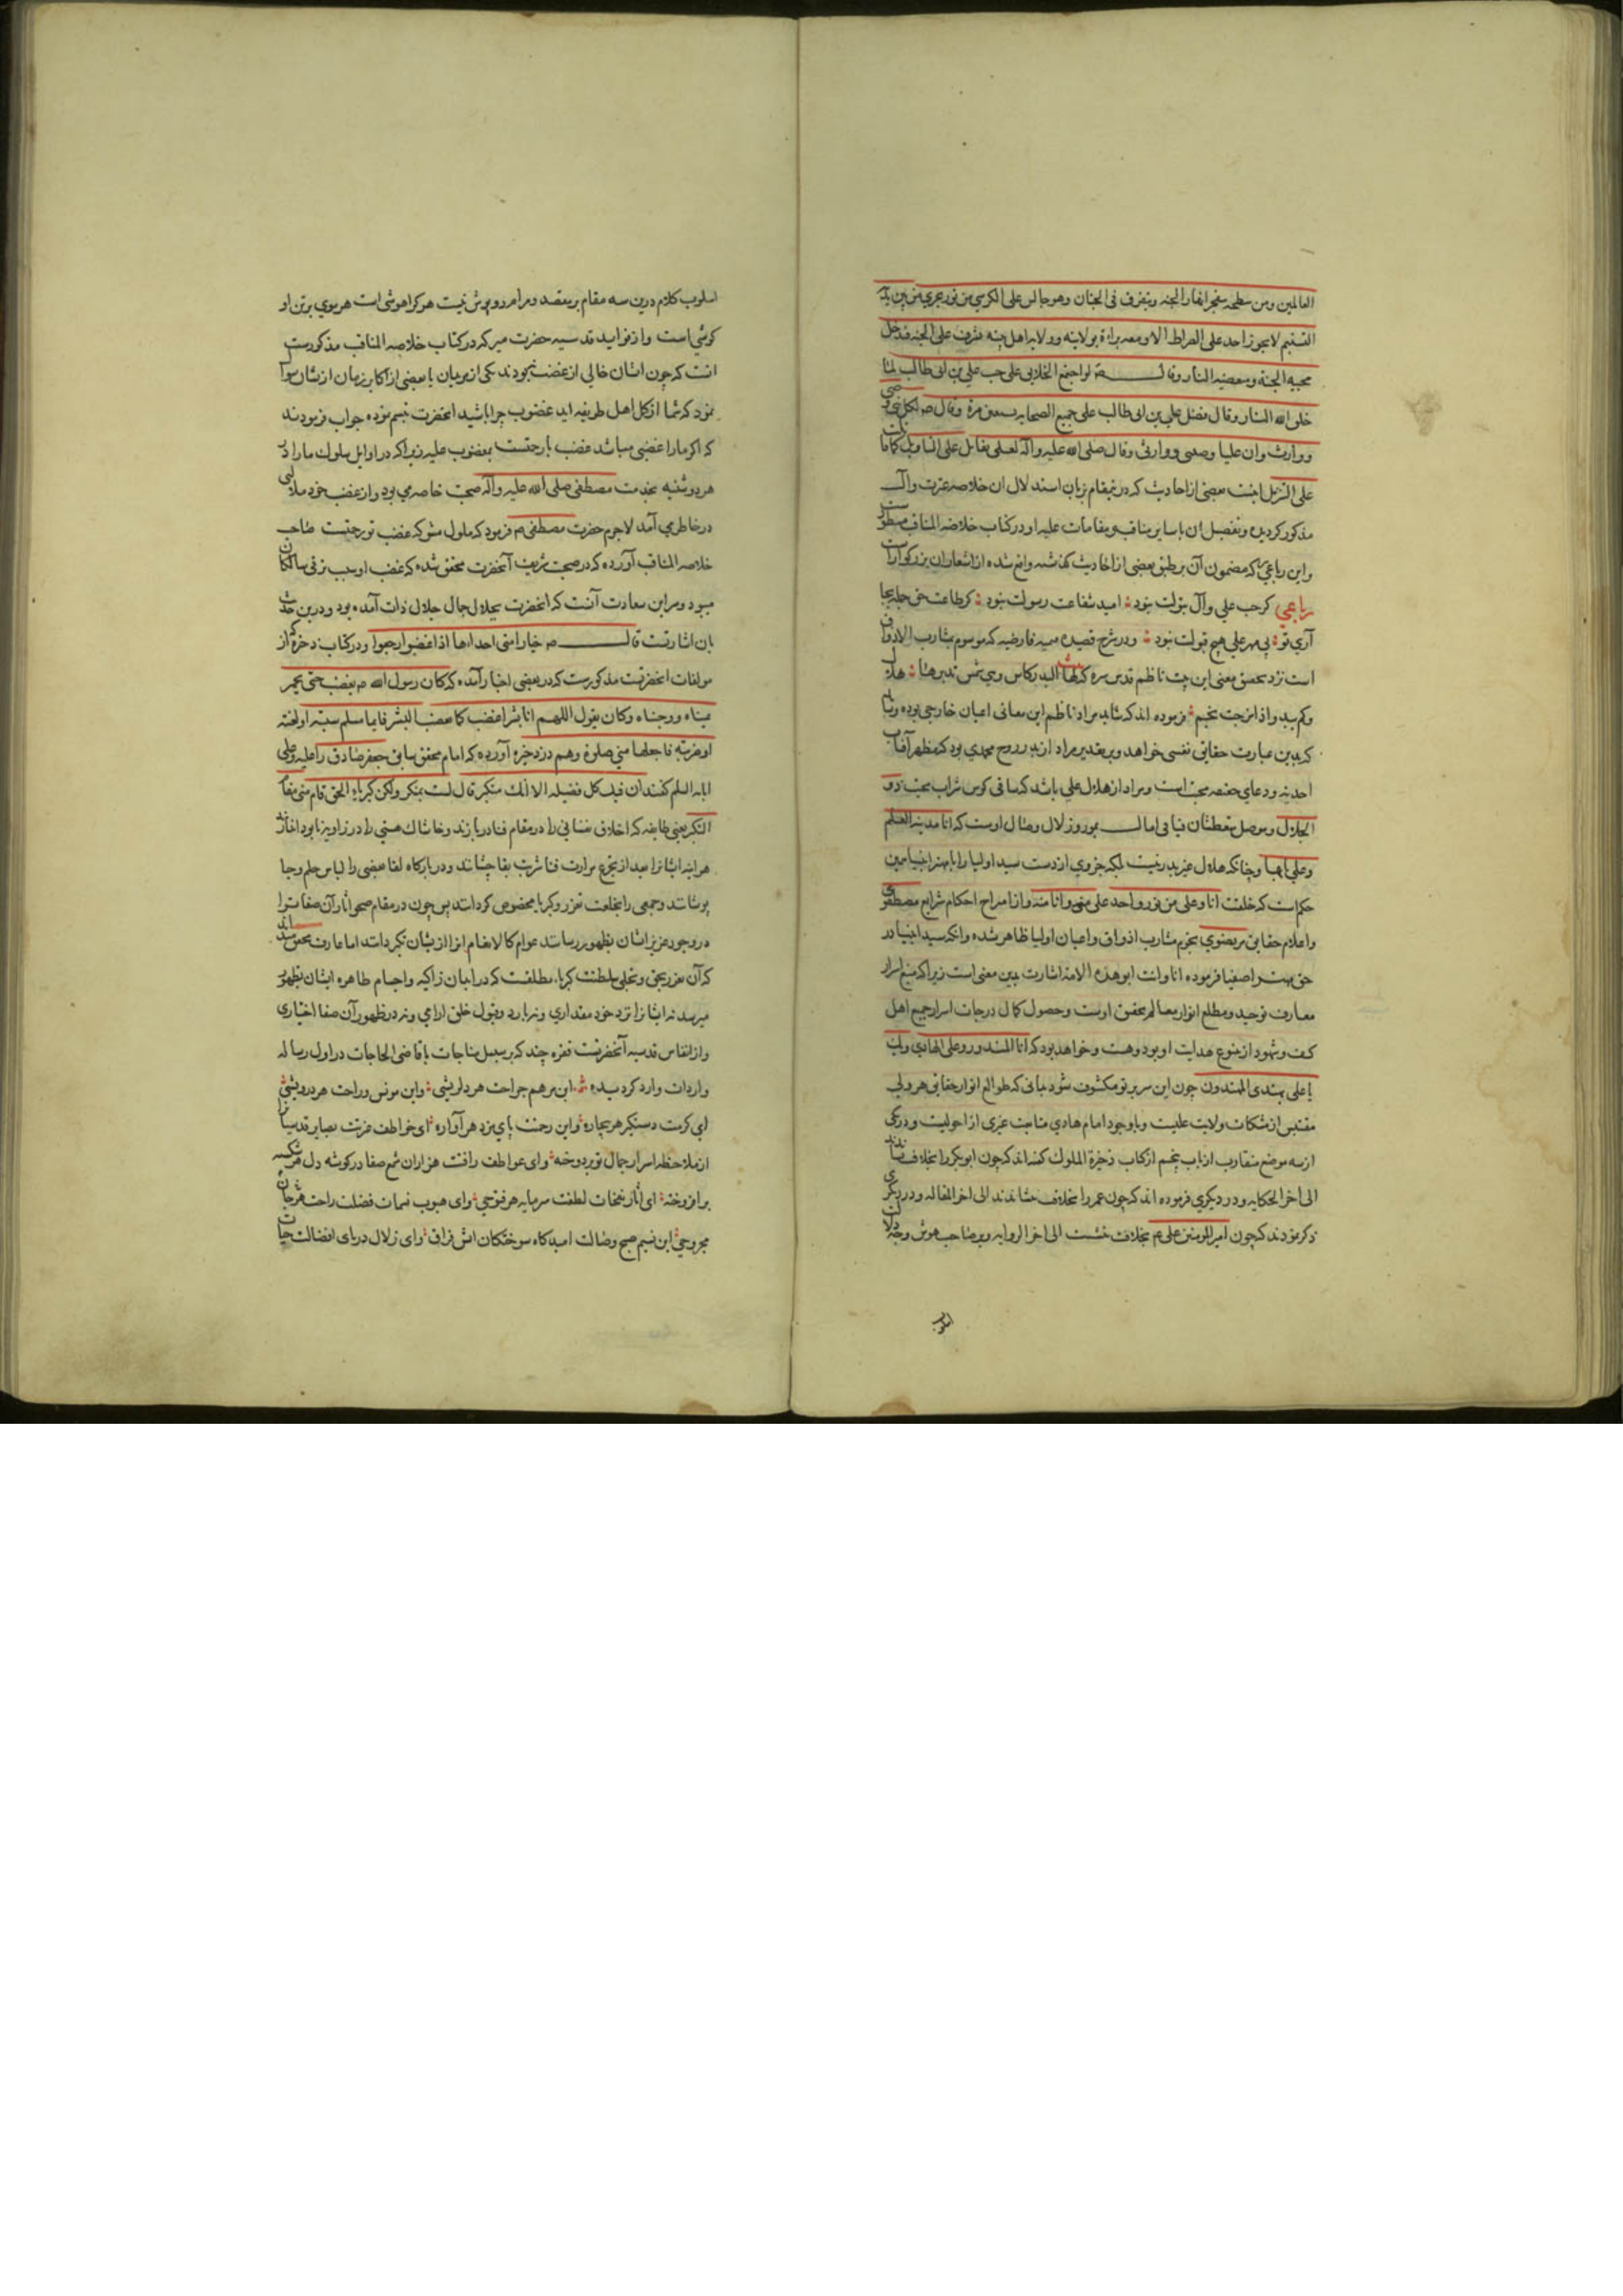 العالمین ومن سطحه ینفجر انهار الجنه ویتفرق فی الجنان وهو جالس علی الکرسی من نور یجری من بین یدیه
التسنیم لا یجوز احد علی الصراط الا ومعه براة بولایته وولایة اهل بیته یشرف علی الجنه فیدخل
محبیه الجنة ومبغضیه النار وقال ص لو اجتمع الخلایق علی حب علی بن ابی طالب لما
خلق الله النار وقال فضل علی بن ابی طالب علی جمیع الصحابه بسبعین مرة وقال ص لکل نبی وصی
ووارث وان علیا وصیی ووارثی وقال صلی الله علیه وآله لعلی یقاتل علی التاویل کما قاتلت
علی التنزیل اینست بعضی از احادیث که درین مقام زبان استدلال ان خلاصه عزت وآل
مذکور کردیده وتفصیل ان با سایر مناقب ومقامات علیه او در کتاب خلاصة المناقب مسطورست
واین رباعی که مضمون آن بر طبق بعضی از احادیث گذشته واقع شده از اشعار ان بزرکوارست
رباعی کر حب علی وآل بتولت نبود امید شفاعت رسولت نبود کر طاعت حق جمله بجا
آری تو بی مهر علی هیچ قبولت نبود ودر شرح قصیده میمیه فارضیه که موسوم بمشارب الاذواق
است نزد تحقیق معنی این بیت ناظم قدس سره که لها البدر کاس وهی شمس یدیرها هلال
وکم یبدو اذا مزجت نجم فرموده اند که شاید مراد ناظم ازین معانی اعیان خارجی بوده ویا
که بدین عبارت حقایق نفسی خواهد وبر تقدیر مراد از بدر روح محمدی بود که مظهر آفتاب
احدیه ووعای حضرت محبت است ومراد از هلال علی باشد که ساقی کوس شراب محبت ذو
الجلال وموصل متعطشان فیافی امال بمورد زلال وصال اوست که انا مدینة العلم
وعلی بابها وچنانکه هلال غیر بدر نیست بلکه جزوی ازوست سید اولیا را با مهتر انبیا همین
حکم است که خلقت انا وعلی من نور واحد علی منی وانا منه واز امزاج احکام شرایع مصطفوی
واعلام حقایق مرتضوی نجوم مشارب اذواق واعیان اولیا ظاهر شده وانکه سید انبیا در
حق مهتر اصفیا فرموده انا وانت ابو هذه الامة اشارت بدین معنی است زیرا که منبع اسرار
معارف توحید ومطلع انوار معالم تحقیق اوست وحصول کمال درجات اسرار جمیع اهل
کشف وشهود از ینبوع هدایت او بود وهست وخواهد بود که انا المنذر وعلی الهادی وبک
یا علی یهتدی المهتدون چون این سر بر تو مکشوف شود بدانی که طوالع انوار حقایق هر ولی
مقتبس از مشکات ولایت علیست وبا وجود امام هادی متابعت غیری از احولیست ودر یکی
از سه موضع متقارب از باب پنجم از کتاب ذخیرة الملوک گفته اند که چون ابوبکر را بخلافت نشاندند
الی آخر الحکایه ودر دیکری فرموده اند که چون عمر را بخلافت نشاندند الی اخر المقاله ودر دیکری
ذکر نمودند که چون امیر المومنین علی م بخلافت نشست الی اخر الروایه وبر صاحب هوش وجه دلالت
اسلوب
اسلوب کلام درین سه مقام بر مقصد ومرام روپوش نیست هر کرا هوشی است هر موی بر تن او
کوشی است واز فواید قدسیه حضرت میر که در کتاب خلاصه المناقب مذکورست
انست که چون ایشان خالی از غضب نبودند یکی از مریدان با بعضی از اکابر زمان از یشان سوال
نمود که شما از کل اهل طریقه اید غضوب چرا باشید انحضرت تبسم نموده جواب فرمودند
که اکر ما را غضبی میباشد غضب ما رحمتست بمغضوب علیه زیرا که در اوایل سلوک ما را در
هر دوشنبه بخدمت مصطفی صلی الله علیه وآله صحبت خاصه می بود واز غضب خود ملالتی
در خاطر می آمد لاجرم حضرت مصطفی ص فرمود که ملول مشو که غضب تو رحمتست صاحب
خلاصه المناقب آورده که در صحبت شریف آنحضرت محقق شده که غضب او سبب ترقی سالکان
میبود وسر این سعادت آنست که انحضرت بجلال جمال جلال ذات آمده بود ودرین حدیث
بان اشارتست قال ص خیار امتی احداءها اذا غضبوا رجعوا ودر کتاب ذخیره که از
مولفات انحضرتست مذکورست که در بعضی اخبار آمده که کان رسول الله ص یغضب حتی یحمر
عیناه ووجناه وکان یقول اللهم انا بشر اغضب کما یغضب البشر فایما مسلم سببته او لعنته
او ضربته فاجعلها منی صلوة وهم در ذخیره آورده که امام محقق سابق جعفر صادق را علیه وعلی
ابایه السلم گفتند ان فیک کل فضیله الا انک متکبر قال لست بمتکبر ولکن کبریاء الحق قام منی مقام
التکبر یعنی طایفه که اخلاق نفسانی را در مقام فنا دربازند وخاشاک هستی را در زاویه نابود اندازند
هر اینه ایشانرا بعد از تجرع مرارت فنا شربت بقا چشانند ودر بارکاه لقا بعضی را لباس حلم وحیا
پوشانند وجمعی را بخلعت تعزز وکبریا مخصوص کردانند پس چون در مقام صحو اثار آن صفات را
در وجود عزیز ایشان بظهور رسانند عوام کالانعام انرا از یشان تکبر دانند اما عارف محقق داند
که آن تعزز بحق وتجلی سلطنت کبریاء مطلقست که در اعیان زاکیه واجسام طاهره ایشان بظهور
میرسد نه ایشانرا نزد خود مقداری ونه با رد وقبول خلق ارامی ونه در ظهور آن صفا اختیاری
واز انفاس قدسیه آنحضرتست فقره چند که بر سبیل مناجات با قاضی الحاجات در اول رساله
واردات وارد کردیده ای مرهم جراحت هر دلریشی وای مونس وراحت هر درویشی
ای کرمت دستکیر هر بیچاره وای رحمتت پای مزد هر آواره ای خواطف عزتت بصایر قدسیانرا
از ملاحظه اسرار جمال تو بردوخته وای عواطف رافتت هزاران شمع صفا در کوشه دل هر شکسته
برافروخته ای آثار نفحات لطفت سرمایه هر فتوحی وای هبوب نسمات فضلت راحت هر جان
مجروحی ای نسیم صبح وصالت امیدکاه سوختکان اتش فراق وای زلال دریای افضالت حیات